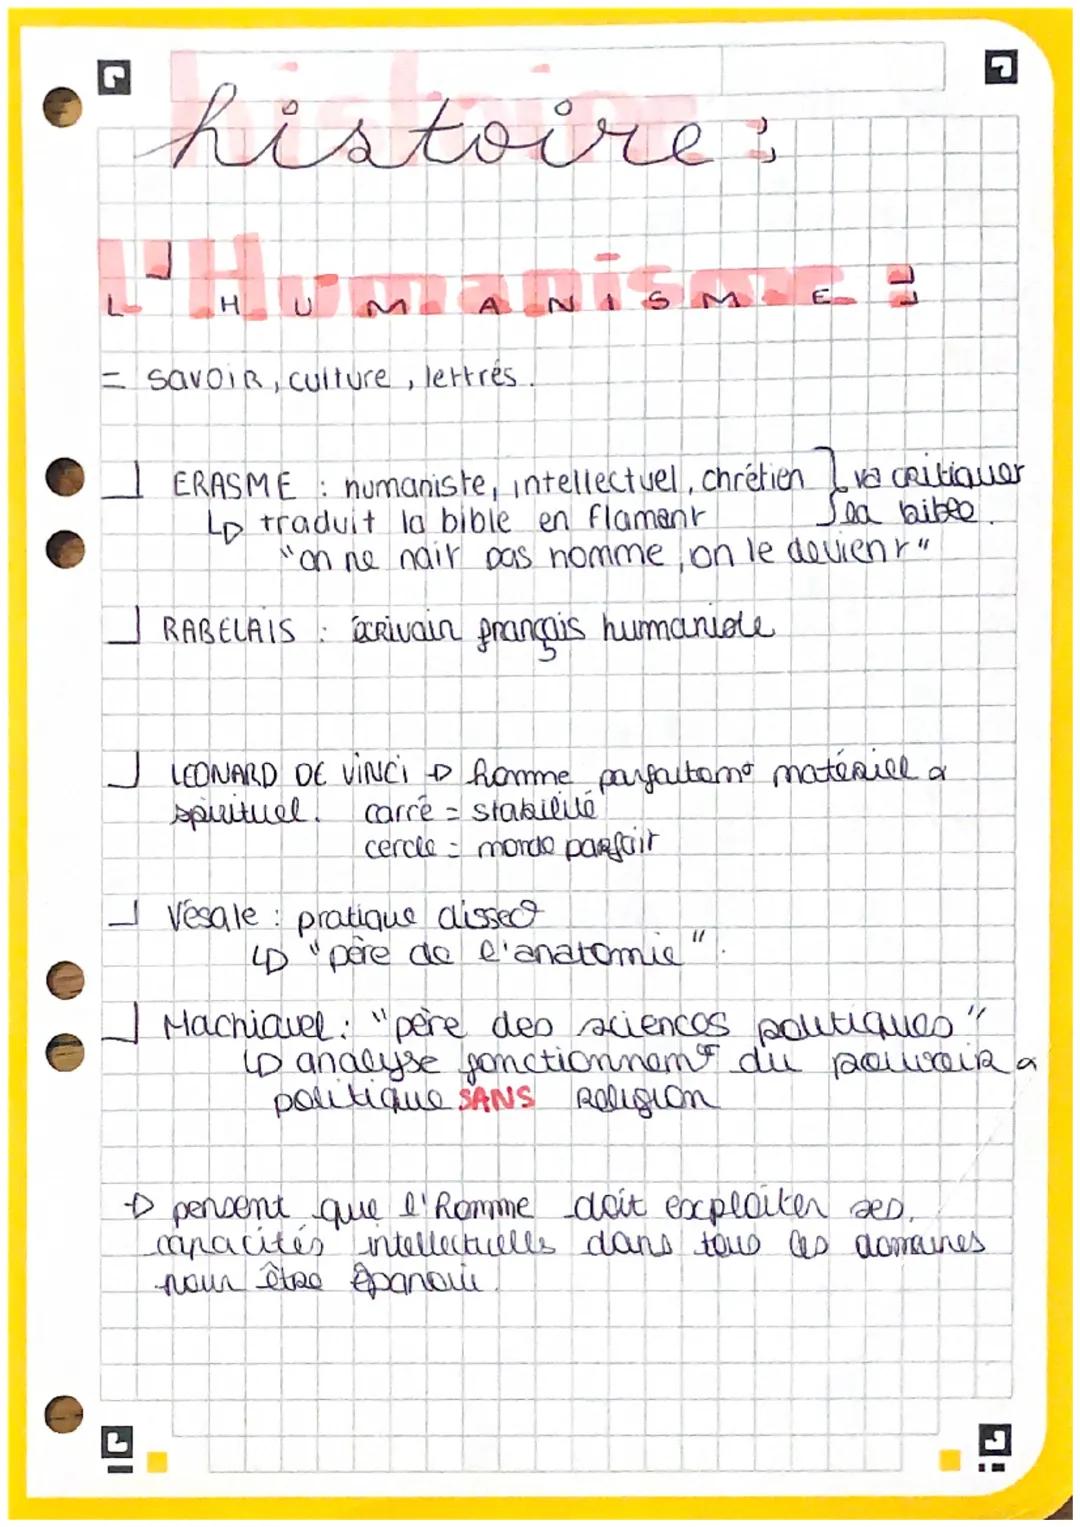 histoire :
L'Humanisme :
L'HUMANISME :
= savoir, culture, lettrés.
ERASME : humaniste, intellectuel, chrétien } va critiquer
↳ traduit la bible en flamant } la bible.
"on ne nait pas homme, on le devient"
RABELAIS : écrivain français humaniste
LEONARD DE VINCI → homme parfaitemt matériell &
spirituel. carré = stabilité
cercle = monde parfait
Vésale : pratique dissect°
↳ "père de l'anatomie".
Machiavel : "père des sciences politiques"
↳ analyse fonctionnemt du pouvoir &
politique SANS Religion
→ pensent que l'Homme doit exploiter ses
capacités intellectuelles dans tous les domaines
pour être épanoui.